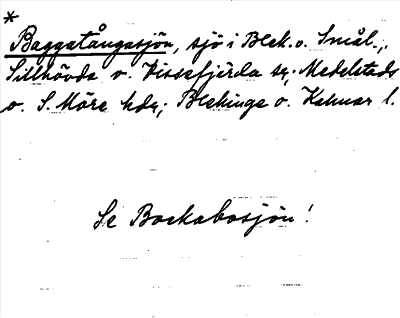 *
Baggetångasjön, sjö i Blek. o. Smål.,
Sillhövda o. Vissefjärda sn; Medelstads
o. S. Möre hdr; Blekinge o. Kalmar l.
Se Bockabosjön!